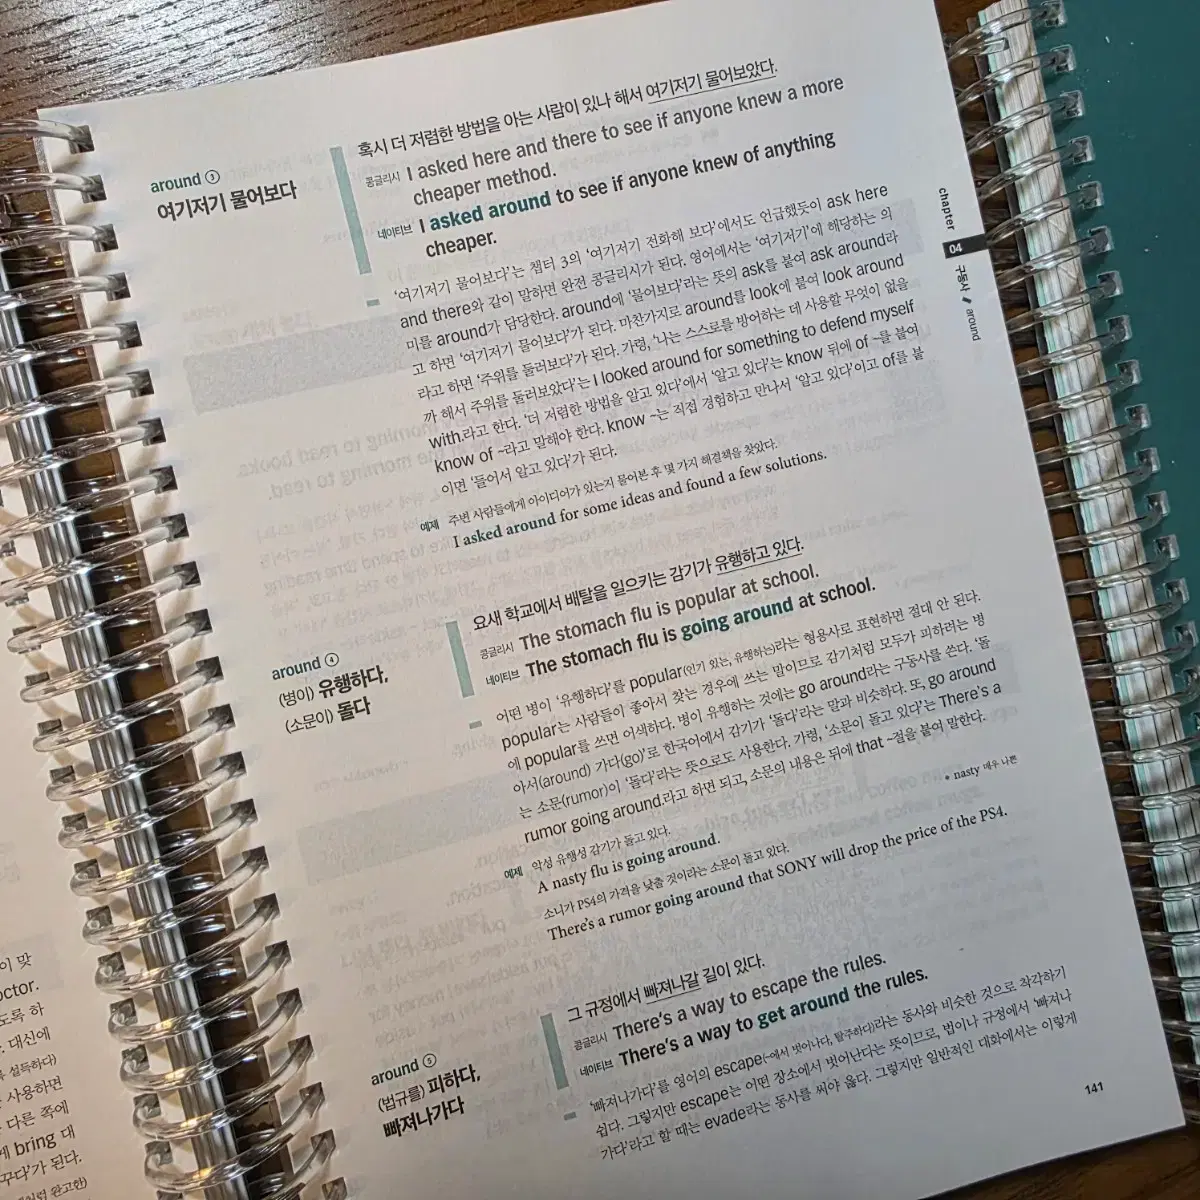 around ③
여기저기 물어보다
혹시 더 저렴한 방법을 아는 사람이 있나 해서 여기저기 물어보았다.
콩글리시 I asked here and there to see if anyone knew a more
cheaper method.
네이티브 I asked around to see if anyone knew of anything
cheaper.
'여기저기 물어보다'는 챕터 3의 '여기저기 전화해 보다'에서도 언급했듯이 ask here
and there와 같이 말하면 완전 콩글리시가 된다. 영어에서는 '여기저기'에 해당하는 의
미를 around가 담당한다. around에 '물어보다'라는 뜻의 ask를 붙여 ask around라
고 하면 '여기저기 물어보다'가 된다. 마찬가지로 around를 look에 붙여 look around
라고 하면 '주위를 둘러보다'가 된다. 가령, '나는 스스로를 방어하는 데 사용할 무엇이 없을
까 해서 주위를 둘러보았다'는 I looked around for something to defend myself
with.라고 한다. '더 저렴한 방법을 알고 있다'에서 '알고 있다'는 know 뒤에 of ~를 붙여
know of ~라고 말해야 한다. know ~는 직접 경험하고 만나서 '알고 있다'이고 of를 붙
이면 '들어서 알고 있다'가 된다.
예제 주변 사람들에게 아이디어가 있는지 물어본 후 몇 가지 해결책을 찾았다.
I asked around for some ideas and found a few solutions.
around ④
(병이) 유행하다,
(소문이) 돌다
요새 학교에서 배탈을 일으키는 감기가 유행하고 있다.
콩글리시 The stomach flu is popular at school.
네이티브 The stomach flu is going around at school.
어떤 병이 '유행하다'를 popular(인기 있는, 유행하는)라는 형용사로 표현하면 절대 안 된다.
popular는 사람들이 좋아서 찾는 경우에 쓰는 말이므로 감기처럼 모두가 피하려는 병
에 popular를 쓰면 어색하다. 병이 유행하는 것에는 go around라는 구동사를 쓴다. '돌
아서(around) 가다(go)'로 한국어에서 감기가 '돌다'라는 말과 비슷하다. 또, go around
는 소문(rumor)이 '돌다'라는 뜻으로도 사용한다. 가령, '소문이 돌고 있다'는 There's a
rumor going around라고 하면 되고, 소문의 내용은 뒤에 that ~절을 붙여 말한다.
예제 악성 유행성 감기가 돌고 있다.
A nasty flu is going around.
• nasty 매우 나쁜
소니가 PS4의 가격을 낮출 것이라는 소문이 돌고 있다.
There's a rumor going around that SONY will drop the price of the PS4.
around ⑤
(법규를) 피하다,
빠져나가다
그 규정에서 빠져나갈 길이 있다.
콩글리시 There's a way to escape the rules.
네이티브 There's a way to get around the rules.
'빠져나가다'를 영어의 escape(~에서 벗어나다, 탈주하다)라는 동사와 비슷한 것으로 착각하기
쉽다. 그렇지만 escape는 어떤 장소에서 벗어난다는 뜻이므로, 법이나 규정에서 '빠져나
가다'라고 할 때는 evade라는 동사를 써야 옳다. 그렇지만 일반적인 대화에서는 이렇게
141
chapter
04
구동사
around
이 맞
octor.
도록 하
. 대신에
설득하다)
사용하면
다른 쪽에
bring 대
꾸다'가 된다.
완고한)